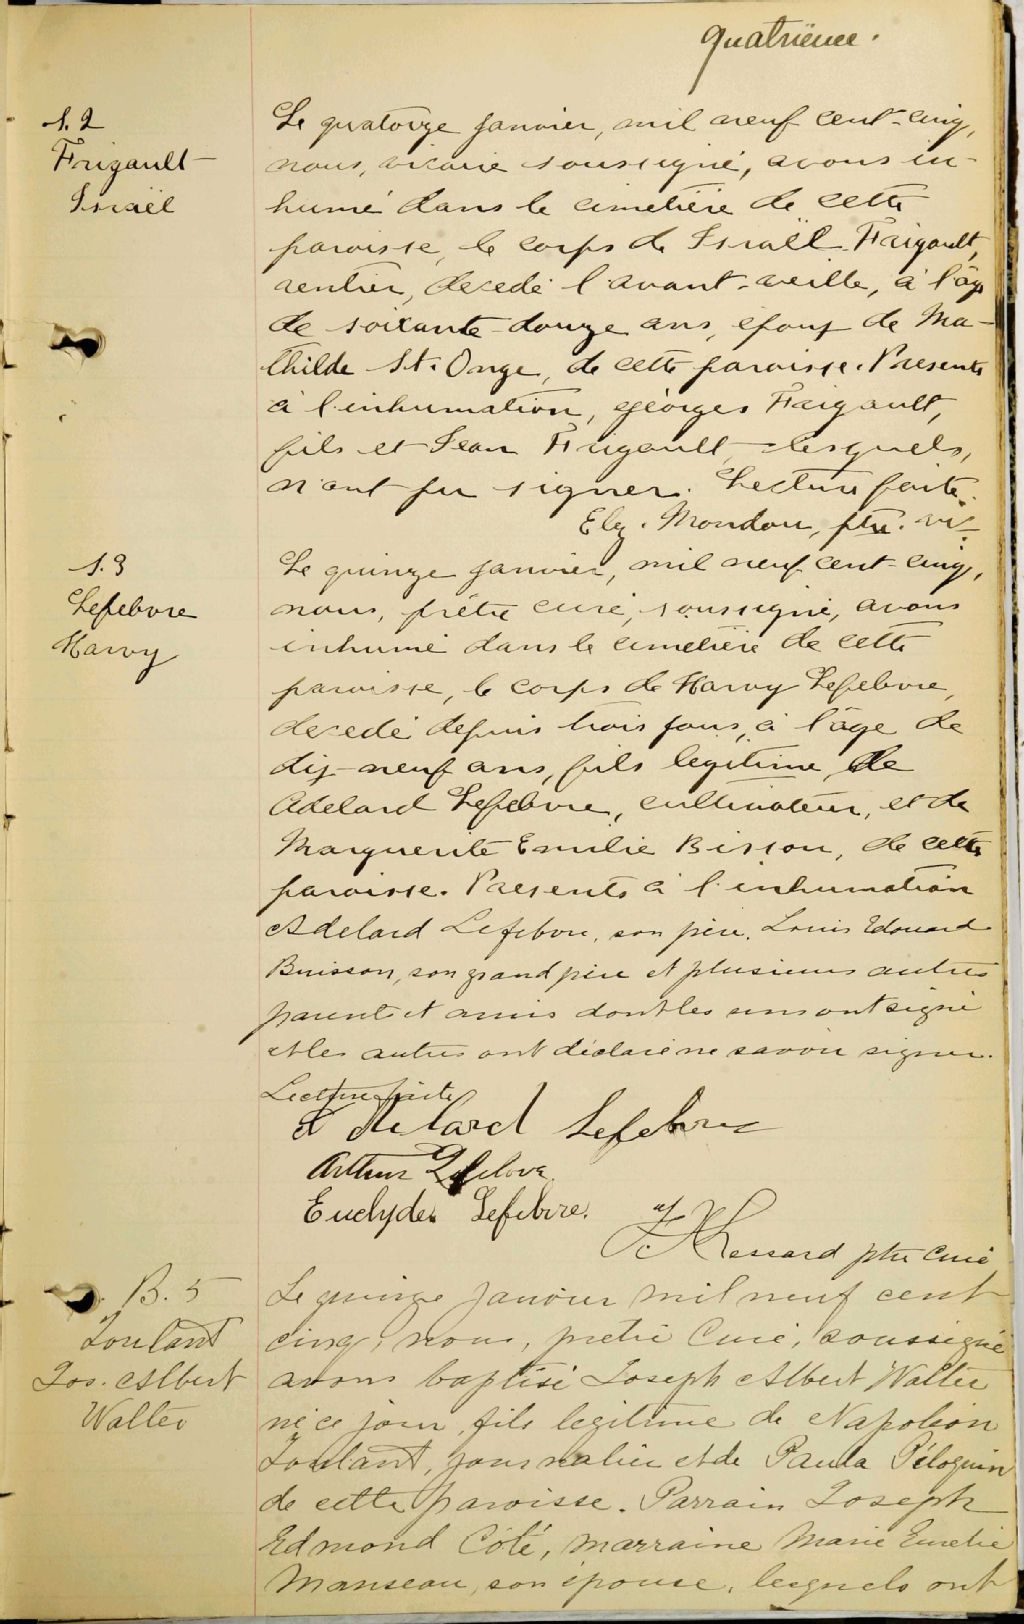 Quatrième.
S. 2
Frigault
Israël
Le quatorze janvier, mil neuf cent-cinq,
nous, vicaire soussigné, avons in-
humé dans le cimetière de cette
paroisse, le corps de Israël Frigault,
rentier, decedé l'avant-veille, à l'âge
de soixante-douze ans, époux de Ma-
thilde St. Onge, de cette paroisse. Presents
à l'inhumation, Géorges Frigault,
fils et Jean Frigault, lesquels,
n'ont pu signer. Lecture faite.
Elz. Mondou, ptre. vic.
S. 3
Lefebvre
Harvy
Le quinze janvier, mil neuf cent-cinq,
nous, prêtre curé, soussigné, avons
inhumé dans le cimetière de cette
paroisse, le corps de Harvy Lefebvre,
decedé depuis trois jours, à l'âge de
dix-neuf ans, fils legitime de
Adelard Lefebvre, cultivateur, et de
Marguerite Emilie Bisson, de cette
paroisse. Presents à l'inhumation
Adelard Lefebvre, son père, Louis Edouard
Buisson, son grand père et plusieurs autres
parents et amis dont les uns ont signé
et les autres ont déclaré ne savoir signer.
Lecture faite
Adelard Lefebvre
Arthur Lefebvre
Euclyde Lefebvre.
Lessard ptre Curé
B. 5
Joulant
Jos. Albert
Walter
Le quinze janvier mil neuf cent
cinq, nous, prêtre Curé, soussigné
avons baptisé Joseph Albert Walter
né ce jour, fils legitime de Napoléon
Joulant, journalier et de Paula Péloquin
de cette paroisse. Parrain Joseph
Edmond Côté, marraine Marie Emelie
Manseau, son épouse, lesquels ont